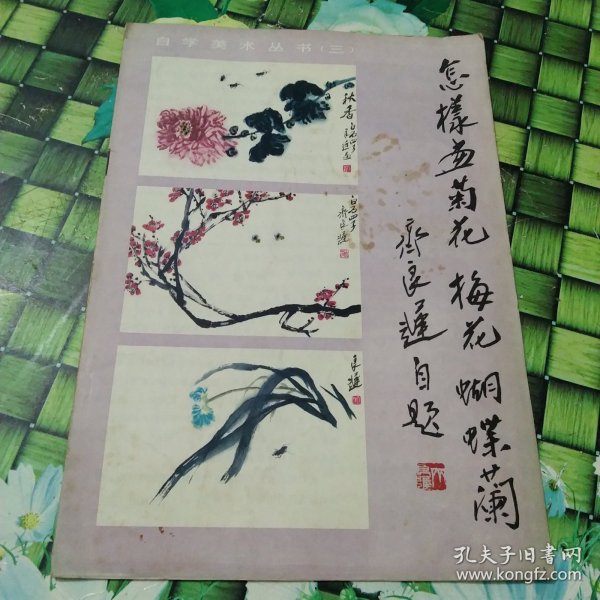 自学美术丛书(三)
怎樣画菊花 梅花 蝴蝶蘭
齐良遲自题
秋香
良遲
孔夫子旧书网
www.kongfz.com